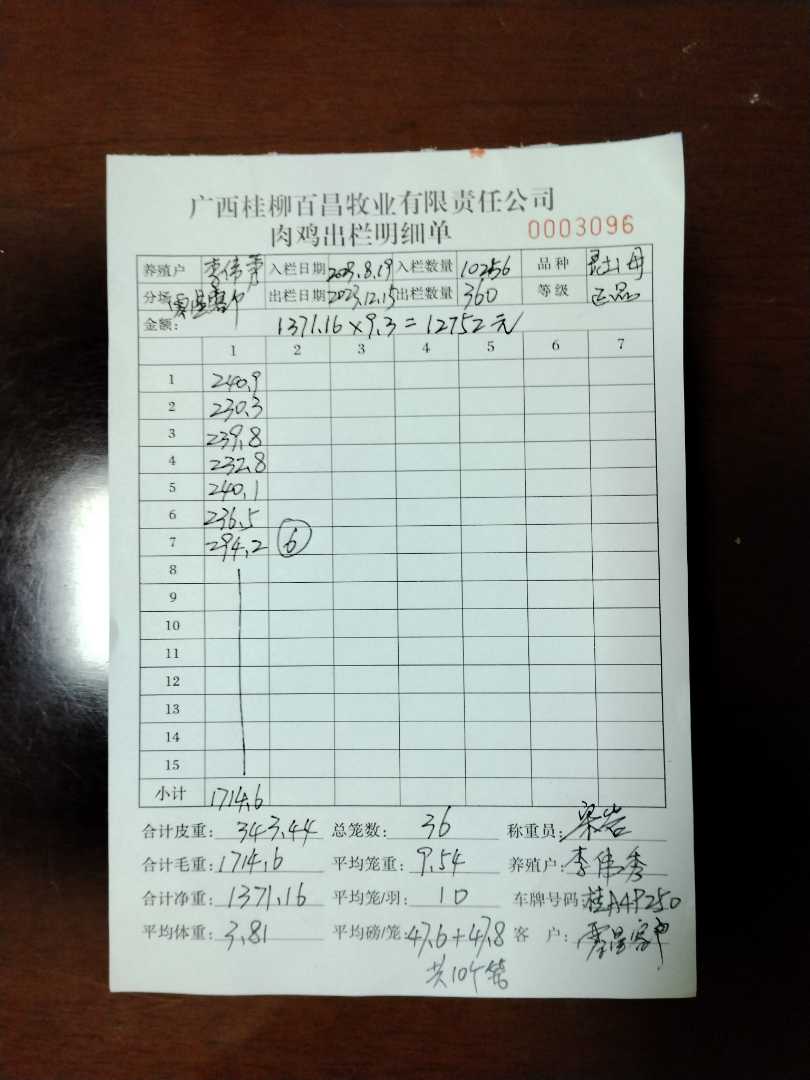 广西桂柳百昌牧业有限责任公司
肉鸡出栏明细单 0003096
养殖户 李伟秀 入栏日期 2023.8.19 入栏数量 10256 品种
分场 出栏日期 2023.12.15 出栏数量 360 等级 正品
金额: 1371.16×9.3=12752元
1 2 3 4 5 6 7
1 240.9
2 230.3
3 239.8
4 232.8
5 240.1
6 236.5
7 294.2 6
8
9
10
11
12
13
14
15
小计 1714.6
合计皮重: 343.44 总笼数: 36 称重员: 梁岩
合计毛重: 1714.6 平均笼重: 9.54 养殖户: 李伟秀
合计净重: 1371.16 平均笼/羽: 10 车牌号码 桂A4P250
平均体重: 3.81 平均磅/笼: 47.6+47.8 客 户: 客户
共10个笼